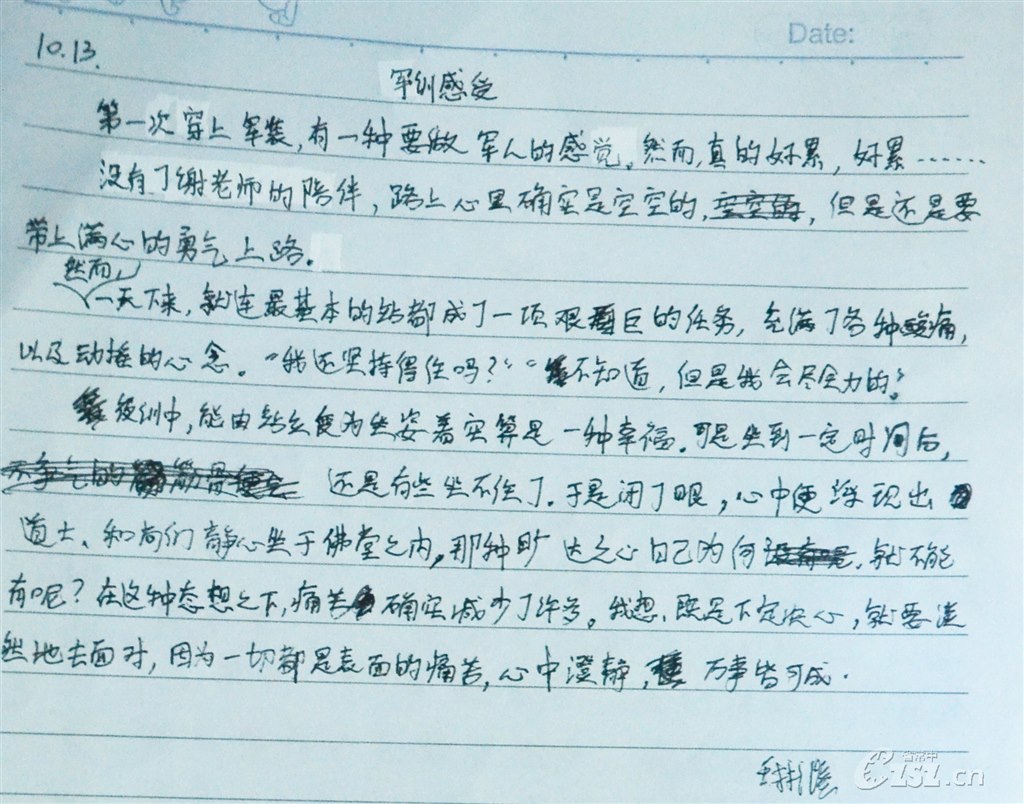 Date:
10.13.
军训感受
第一次穿上军装,有一种要做军人的感觉。然而,真的好累,好累……
没有了谢老师的陪伴,路上心里确实是空空的,但是还是要
带上满心的勇气上路。
然而,
一天下来,就连最基本的站都成了一项艰巨的任务,充满了各种酸痛,
以及动摇的心念。“我还坚持得住吗?”“不知道,但是我会尽全力的。”
后训中,能由站立变为坐姿着实算是一种幸福。可是坐到一定时间后,
还是有些坐不住了。于是闭了眼,心中便浮现出
道士、和尚们静心坐于佛堂之内,那种旷达之心自己为何就不能
有呢?在这种态想之下,痛苦确实减少了许多。我想,既是下定决心,就要淡
然地去面对,因为一切都是表面的痛苦,心中澄静,万事皆可成.
省常中
CZ181.cn